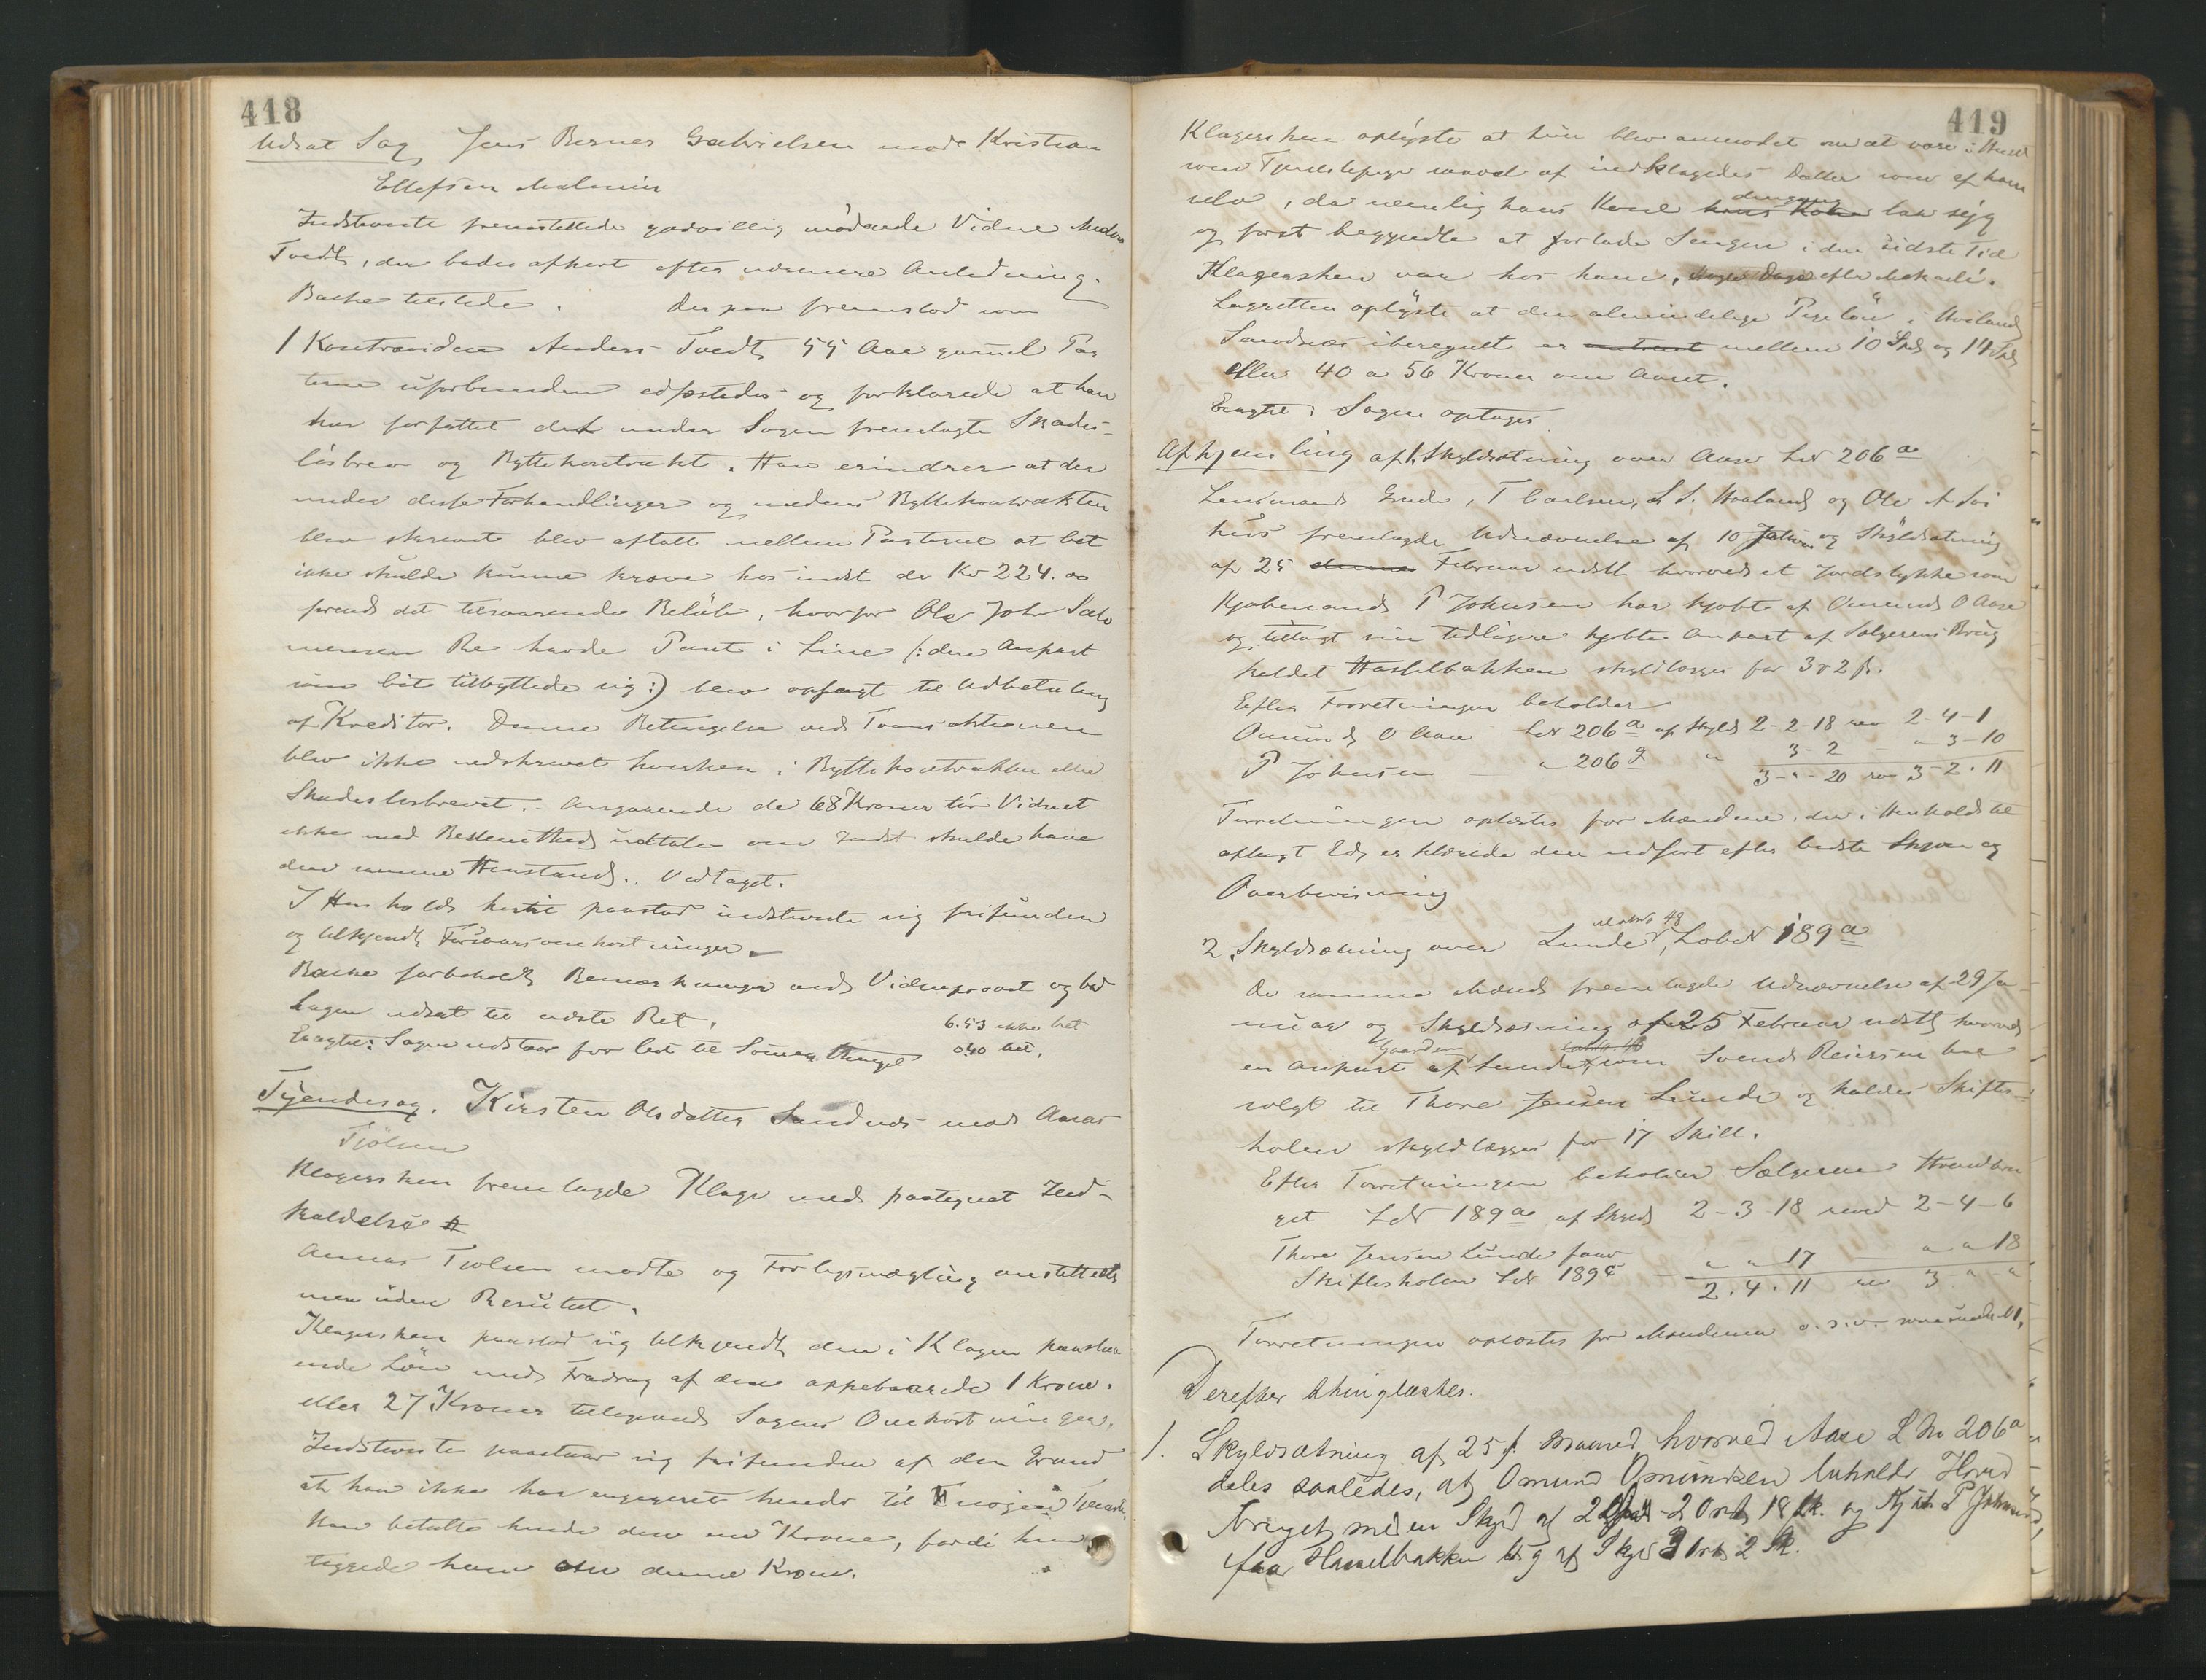 418
Udsat Sag, Jens Berner Gabrielsen mod Kristian
Ellefsen Malmin
Indstevnte fremstillede godvillig mødende Vidne Anders
Tvedt, der bades afhørt efter nærmere Anledning.
Bache tilstede. Der paa fremstod som
1 Kontravidne Anders Tvedt, 55 Aar gammel Par
terne uforbunden edfæstedes og forklarede at han
har forfattet det under Sagen fremlagte Skades-
løsbrev og Byttekontrakt. Han erindrer at der
under disse Forhandlinger og medens Byttekontrakten
blev skrevet blev aftalt mellem Parterne at Cit
ikke skulde kunne kræve hos indst de Kr 224.00
forend det tilsvarende Beløb, hvorfor Ole John Salo
monsen Re havde Pant i Line (: den Anpart
som Cit tilbyttede sig :) blev opsagt til Udbetaling
af Kreditor. Denne Betingelse ved Transaktionen
blev ikke nedskrevet hverken i Byttekontrakten eller
Skadesløsbrevet. Angaaende de 68 Kroner tør Vidnet
ikke med Bestemthed udtale om Indst skulde have
den samme Henstand. Vedtaget.
I Henhold hertil paastod indstevnte sig frifunden
og tilkjendt Forsvarsomkostninger.
Bache forbeholdt Bemærkninger ved Vidneprovet og bad
Sagen udsat til næste Ret.
6.53 ikke bet
Eragtet: Sagen udstaar for Cit til Sommerthinget
0.40 bet.
Tjendesag. Kirsten Olsdatter Sandnæs mod Aanas
Tjølsen
Klagersken fremlagde Klage med paategnet Ind-
kaldelse
Aanas Tjølsen mødte og Forligsmægling anstilledes
men uden Resultat.
Klagersken paastod sig tilkjendt den i Klagen paastaa
ende Løn med Fradrag af den oppebaarede 1 Krone.
eller 27 Kroner tilligemed Sagens Omkostninger.
Indstevnte paastaar sig frifunden af den Grund
at han ikke har engageret hende til nogen Tjeneste.
Han betalte hende den ene Krone, fordi hun
tiggede ham om denne Krone.
419
Klagersken oplyste at hun blev anmodet om at være i Huset
som Tjenestepige saavel af indklagedes Datter som af ham
selv, da nemlig hans Kone hans Kone dengang laa syg
og først begyndte at forlade Sengen i den sidste Tid
Klagersken var hos ham, nogle Dage efter Mikaeli.
Lagretten oplyste at den almindelige Pigeløn i Høiland
Sandnæs iberegnet er omtrent mellem 10 Spd og 14 Spd
eller 40 a 56 Kroner om Aaret.
Eragtet: Sagen optages.
Afhjemling af 1. Skyldsætning over Aase LN 206 a
Lensmand Grude, T Carlsen, L S. Haaland og Ole A Soi
hus fremlagde Udnævnelse af 10 Februar og Skyldsætning
af 25 denne Februar udstt hvorved et Jordstykke som
Kjøbmand P Johnsen har kjøbt af Omund O Aase
og tillagt sin tidligere kjøbte Anpart af Sælgerens Brug
kaldet Hasselbakken skyldlægges for 3 o 2 s.
Efter Forretningen beholder
Omund O Aase LN 206 a af Skyld 2-2-18 rev 2-4-1
P Johnsen " 206 g " 3-2 " 3-10
3-"-20 rev 3-2.11
Forretningen oplæstes for Mændene, der i Henhold til
aflagt Ed, erklærede den udført efter bedste Skjøn og
Overbevisning
2. Skyldsætning over Lunde MatrN 48, LøbeN 189 a
De samme Mænd fremlagde Udnævnelse af 29 Ja
nuar og Skyldsætning af 25 Februar udstt hvorved
en Anpart af Gaarden Lunde som Svend Reiersen har
solgt til Thore Jensen Lunde og kaldes Skiftes-
holen skyldlægges for 17 Skill.
Efter Forretningen beholder Sælgeren Hovedbru
get LN 189 a af Skyld 2-3-18 revid 2-4-6
Thore Jensen Lunde faar
Skiftesholen LN 189 c " " 17 " " 18
2.4.11 rev 3 " "
Forretningen oplæstes for Mændene o. s. v. som under N 1.
Derefter thinglæstes.
1. Skyldsætning af 25 f. Maaned hvorved Aase L No 206 a
deles saaledes, at Omund Omundsen beholder Hoved
bruget med en Skyld af 2 Daler - 2 Ort 18 Sk. og Kjøbm P Johnsen
faar Hasselbakken 206 g af Skyld 3 Ort 2 Sk.